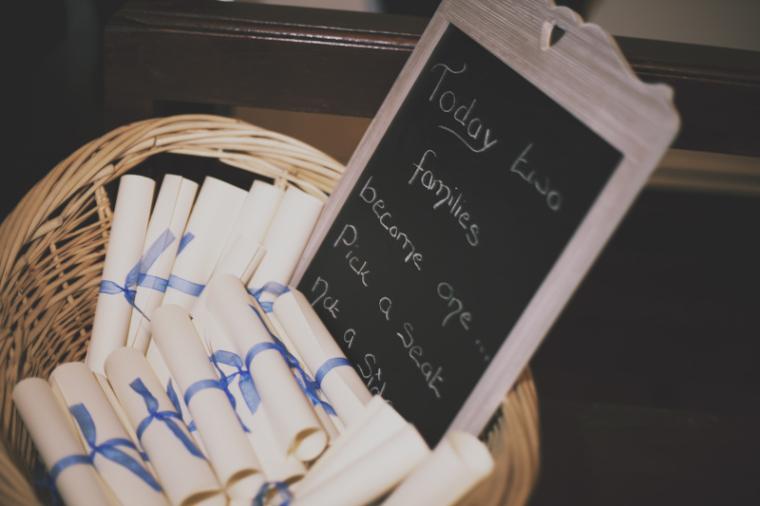 Today two
families
become one...
Pick a seat
not a side